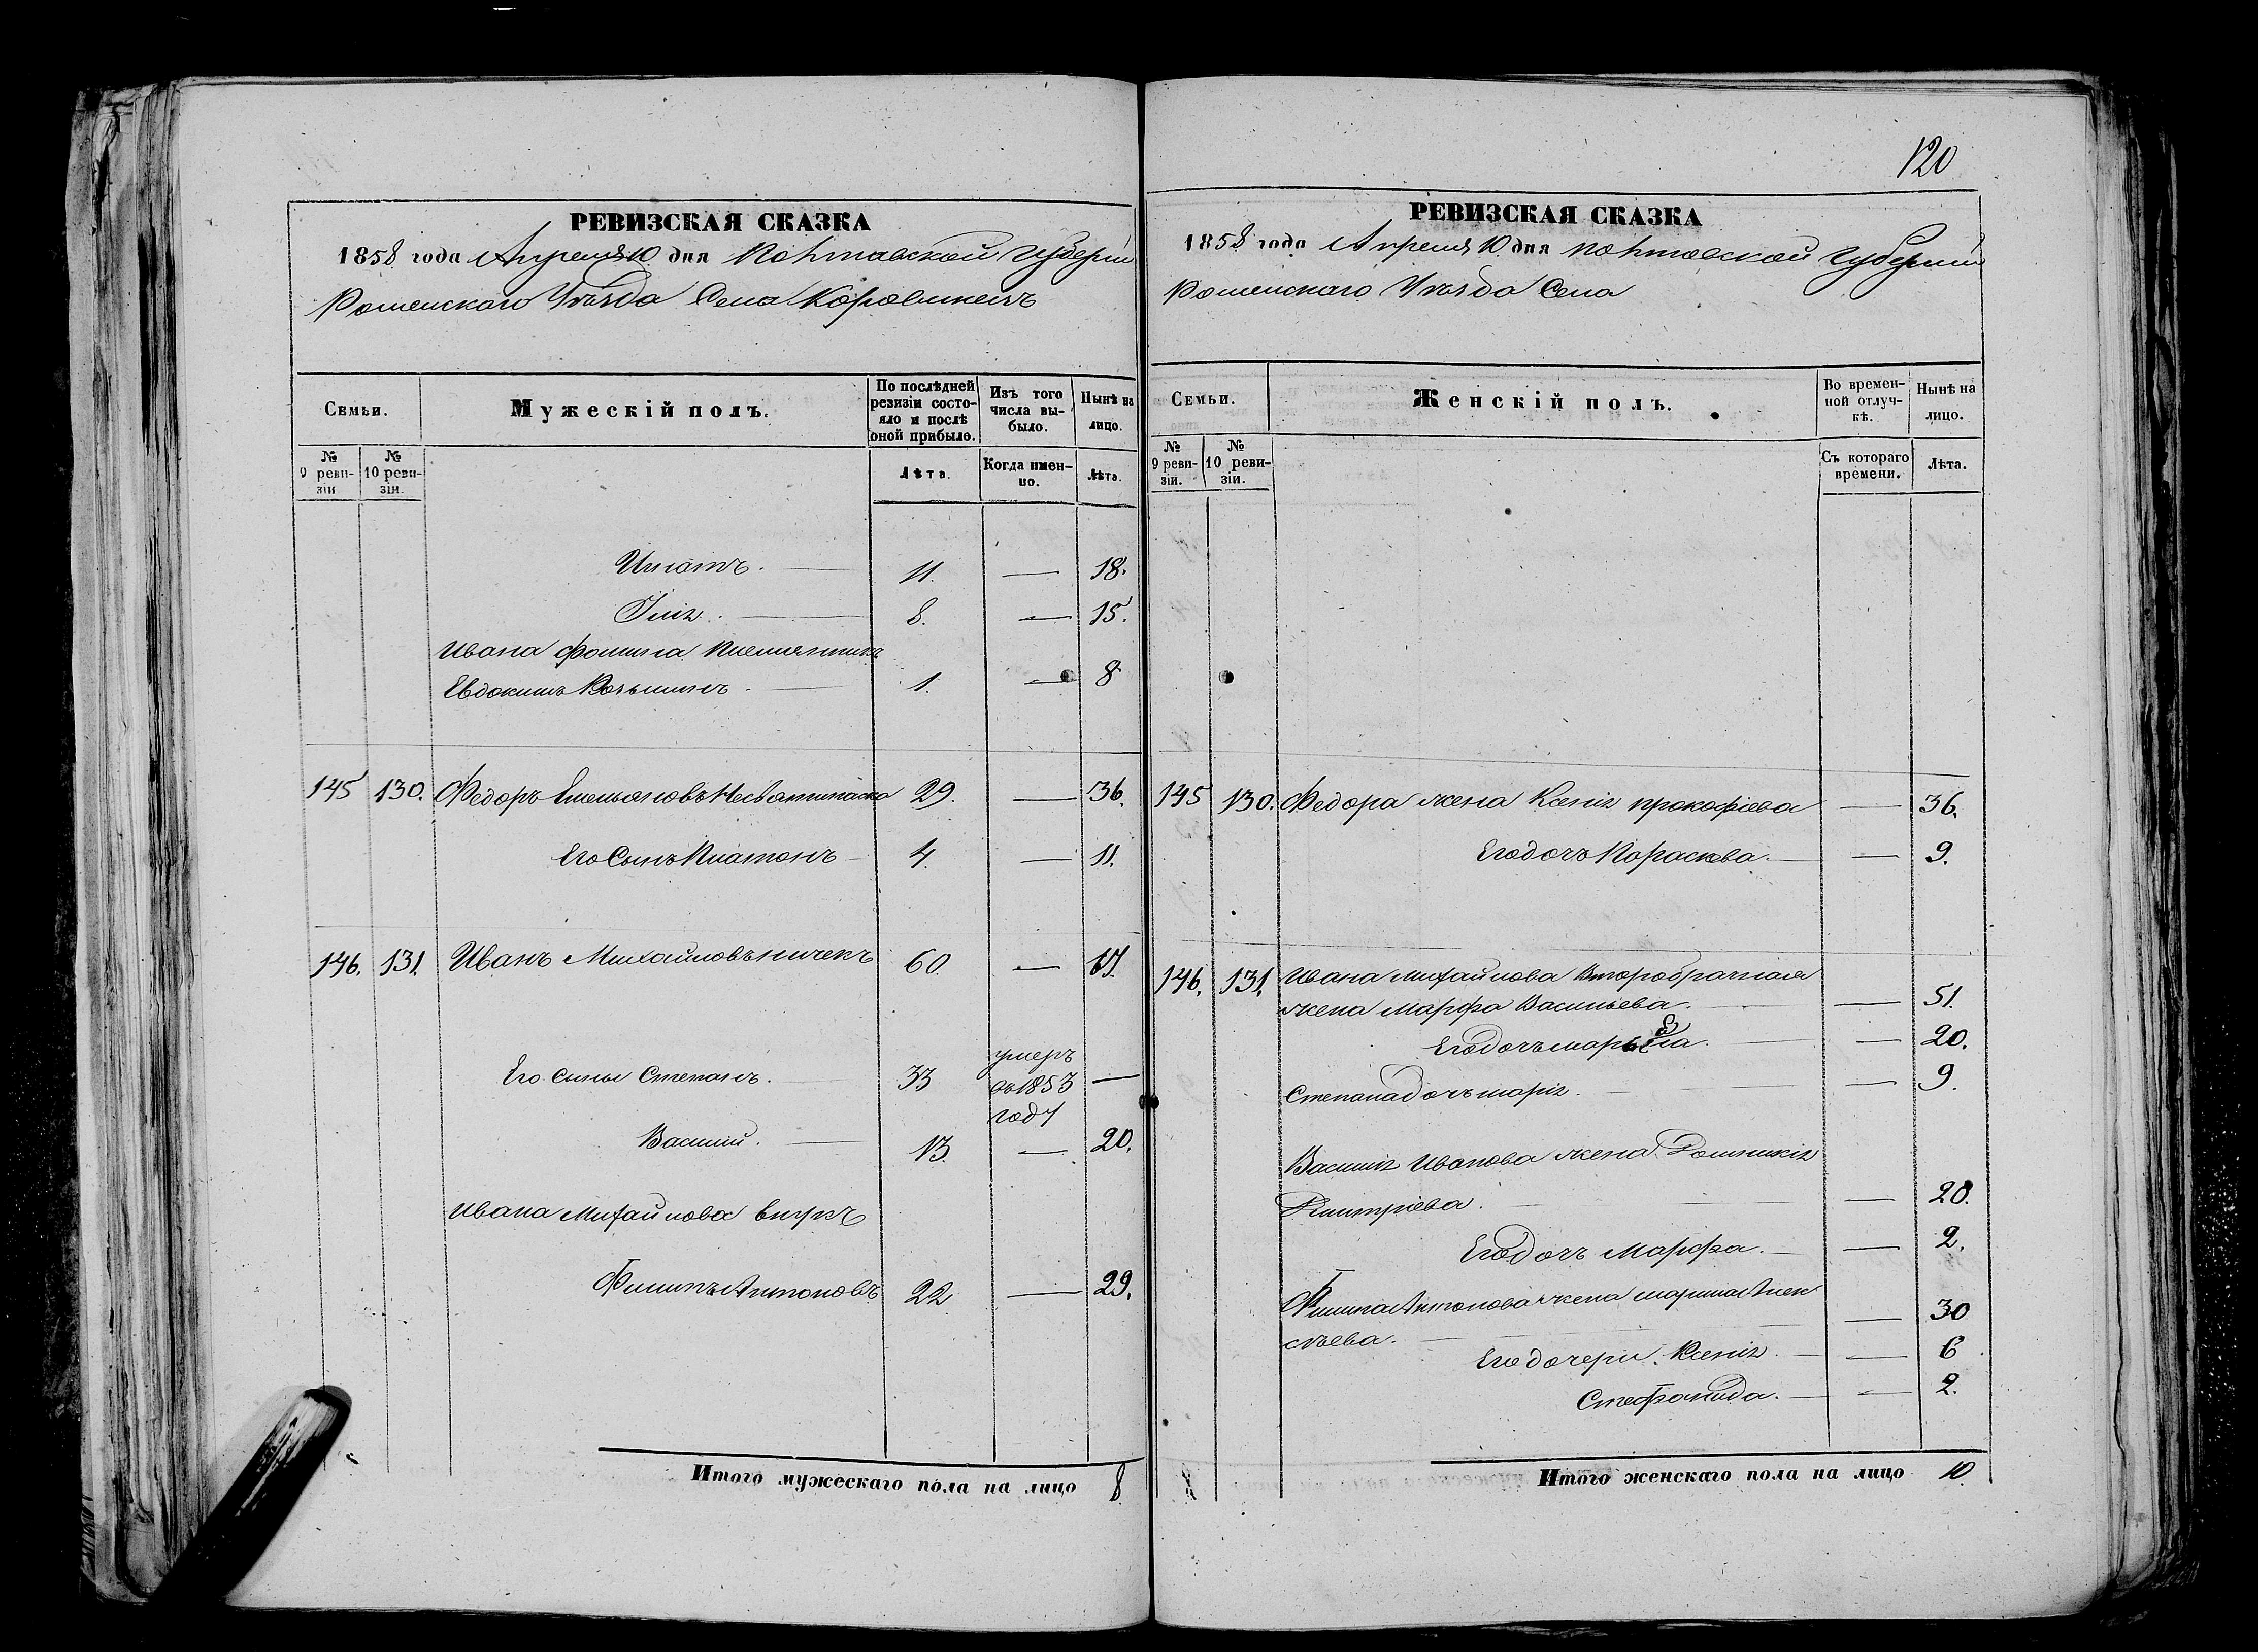 120
РЕВИЗСКАЯ СКАЗКА
1858 года Апреля 10 дня Полтавской губерніи
Роменскаго Уѣзда Села Коровинецъ
Семьи.
Мужескій полъ.
По послѣдней ревизіи состояло и послѣ оной прибыло.
Изъ того числа выбыло.
Нынѣ на лицо.
№ 9 ревизіи
№ 10 ревизіи.
Лѣта.
Когда именно.
Лѣта.
Игнатъ. — 11. — 18.
Илія. — 8. — 15.
Ивана Фомина племянникъ
Евдокимъ Козьминъ. — 1. — 8
145 130. Федоръ Емельяновъ 29. — 36.
Его Сынъ Платонъ — 4. — 11.
146. 131. Иванъ Михайловъ Ничекъ 60. — 67.
Его сыны Степанъ. — 33 умеръ въ 1853 году —
Василий. — 13. — 20.
Ивана Михайлова внукъ
Филипъ Антоновъ 22 — 29.
Итого мужескаго пола на лицо 8.
РЕВИЗСКАЯ СКАЗКА
1858 года Апреля 10 дня Полтавской Губерніи
Роменскаго Уѣзда Села
Семьи.
Женскій полъ.
Во временной отлучкѣ.
Нынѣ на лицо.
№ 9 ревизіи.
№ 10 ревизіи.
Съ котораго времени.
Лѣта.
145 130. Федора жена Ксенія прокофіева — 36.
Его дочь Параскева. — 9.
146. 131. Ивана Михайлова Второбрачная
жена Марфа Васильева. — 51.
Его дочь — 20.
Степана дочь марія. — 9.
Василія Иванова жена Домникія
Дмитріева. — 20.
Его дочь Марфа. — 2.
Филипа Антонова жена марина Алек
сѣева. — 30
Его дочери. Ксенія. — 6
Стефанида. — 2.
Итого женскаго пола на лицо 10.